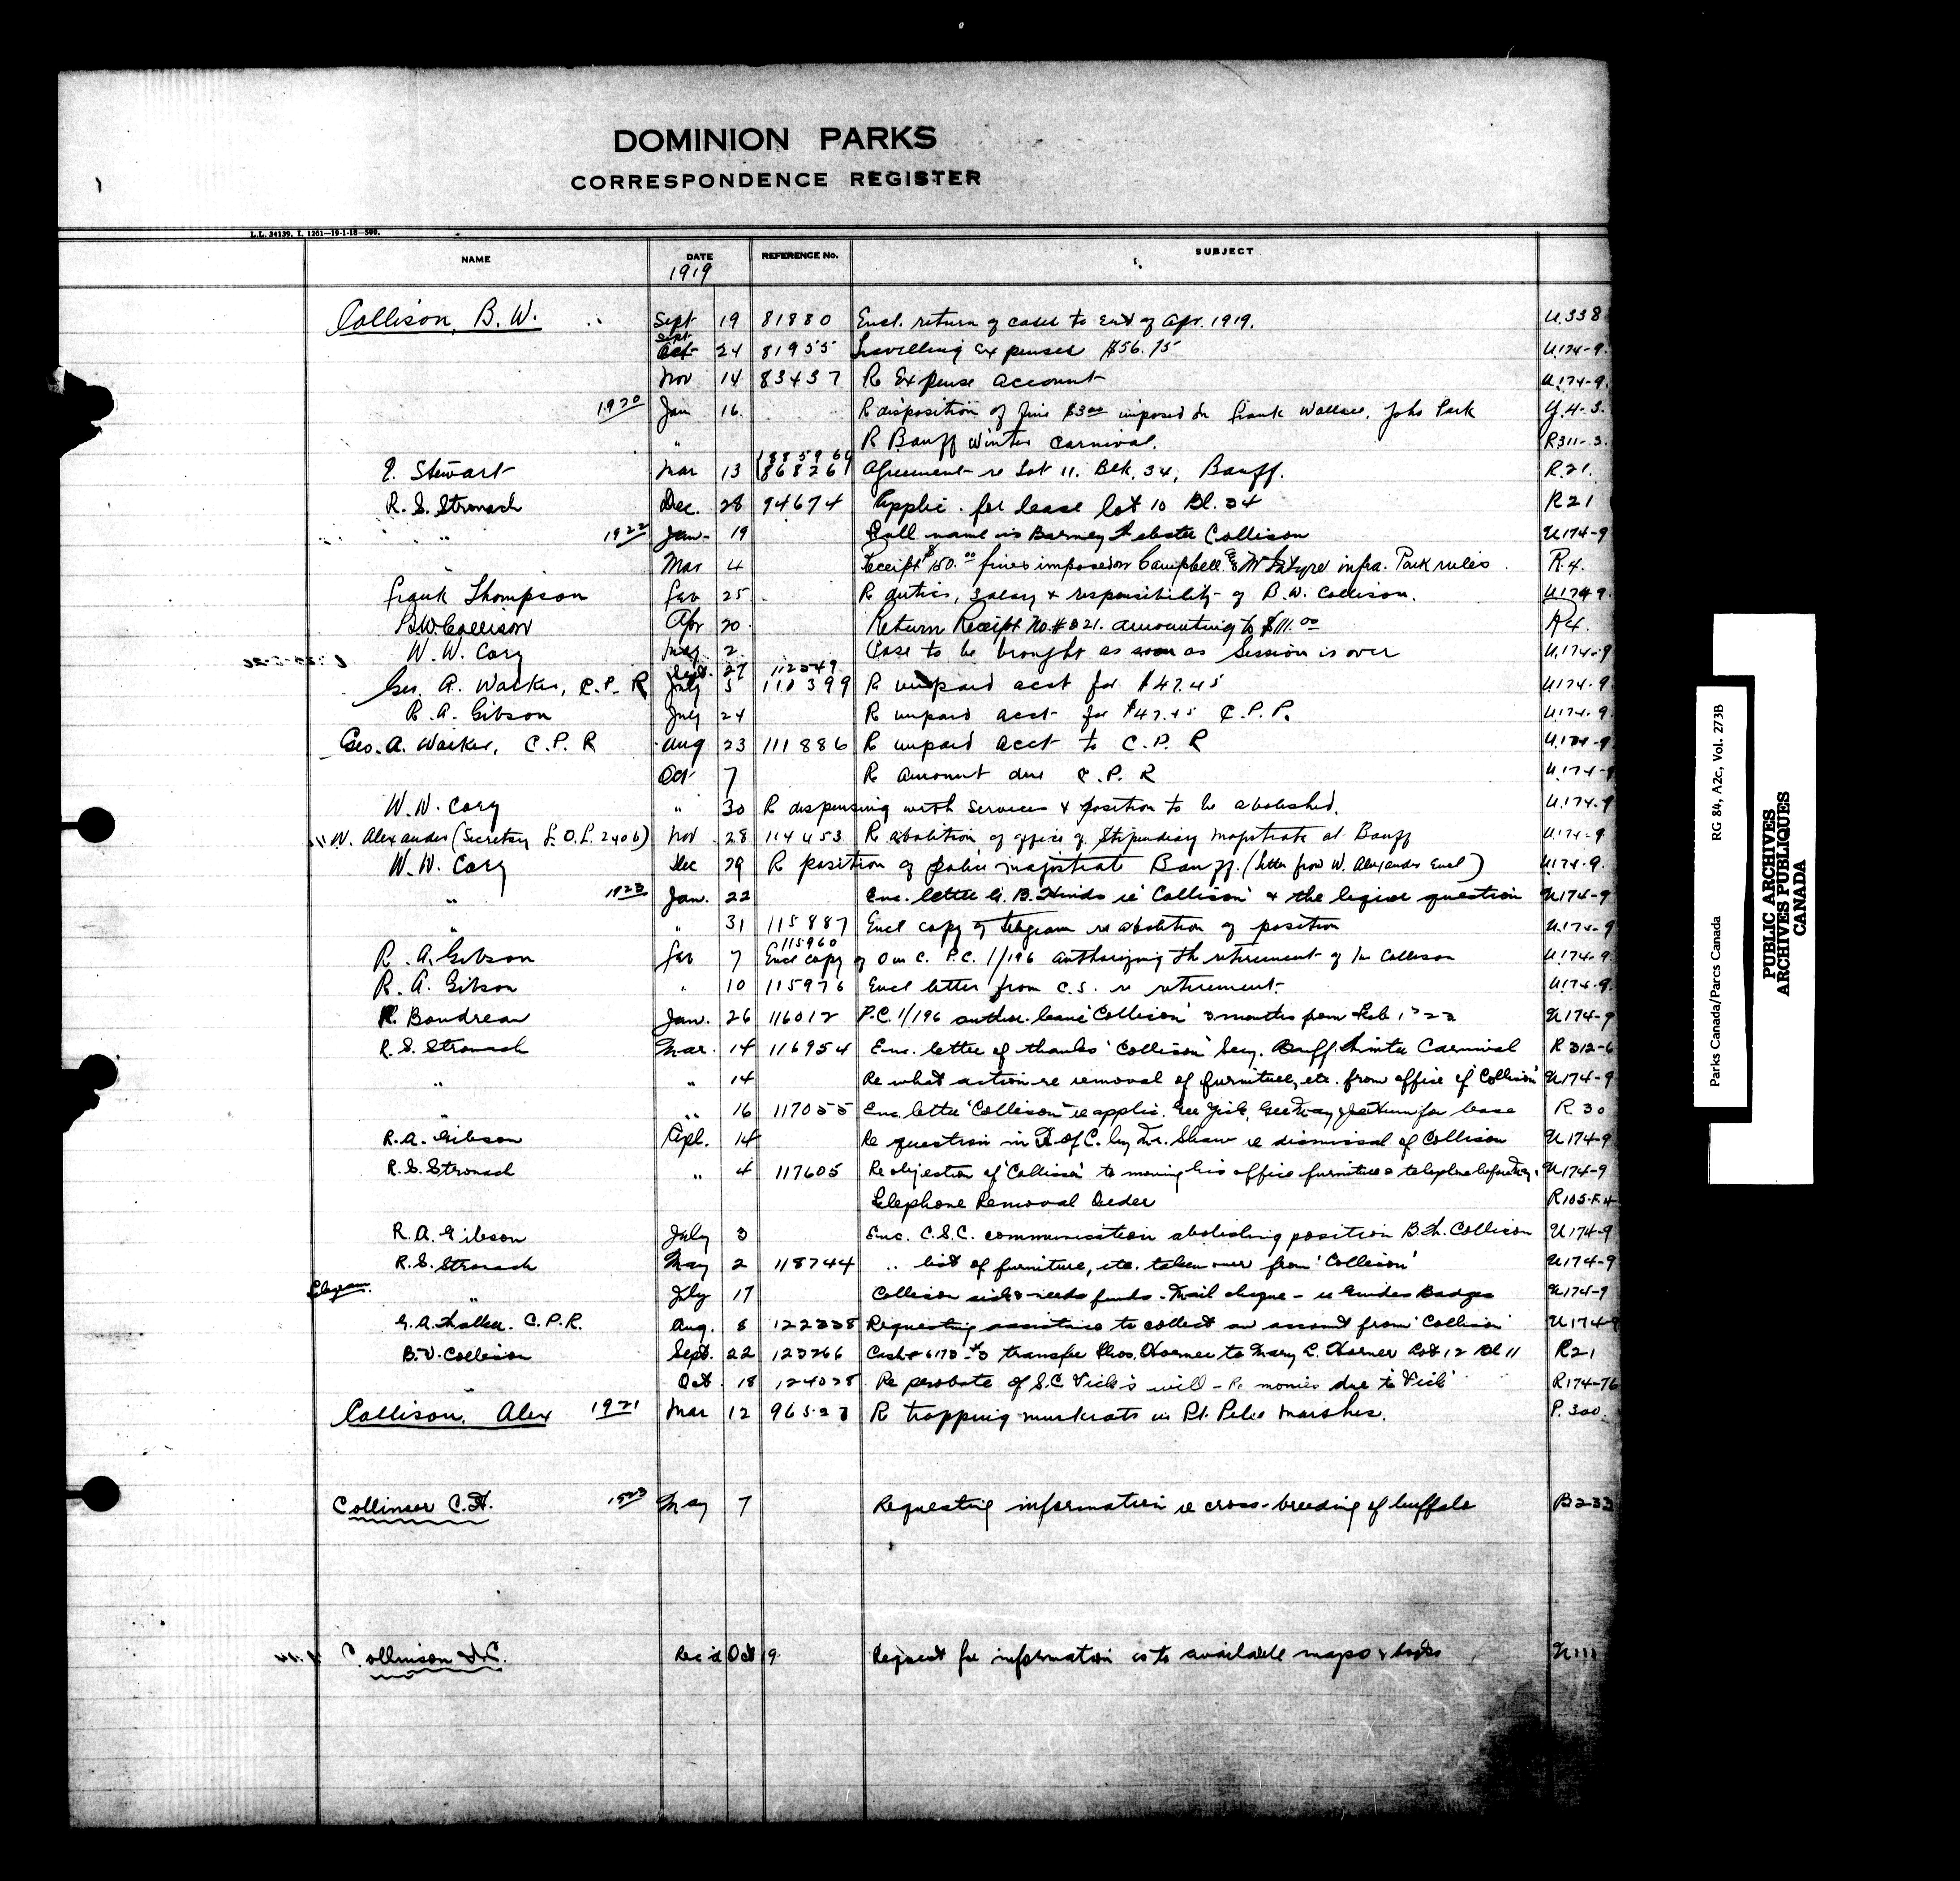 DOMINION PARKS
CORRESPONDENCE REGISTER
L.L. 34139. I. 1261—19-1-18—500.
NAME DATE REFERENCE No. SUBJECT
1919
Collison, B. W. Sept 19 81880 Encl. return of cases to end of Apr. 1919. U.338
Sept 24 81955 Travelling Expenses $56.75 U.174-9.
Nov 14 83437 R Expense account U.174-9.
1920 Jan 16 R disposition of fine $3.00 imposed on Frank Wallace, John Park Y.4-3.
" R Banff Winter Carnival. R311-3.
Stewart Mar 13 86826 Agreement re Lot 11. Blk. 34, Banff. R.21.
R. S. Stronach Dec. 28 94674 Applic. for lease lot 10 Bl. 34 R21
" 1922 Jan. 19 Full name is Barney Webster Collison U174-9
Mar 4 Receipt $50.00 fines imposed on Campbell & McIntyre infra. Park rules R.4.
Frank Thompson Feb 25 R duties, salary & responsibility of B.W. Collison. U174-9.
B.W. Collison Apr 20 Return Receipt No. amounting to $111.00 R4.
W. W. Cory May 2 Case to be brought as soon as Session is over U.174-9
Sept. 27 112349
Geo. A. Walker, C.P.R July 5 110399 R unpaid acct for $47.45 U174-9.
R. A. Gibson July 24 R unpaid acct for $47.45 C.P.R. U.174-9.
Geo. A. Walker, C.P.R Aug 23 111886 R unpaid acct to C.P.R U.174-9
Oct 7 R amount due C.P.R U.174-9
W. W. Cory " 30 R dispensing with services & position to be abolished. U.174-9
W. Alexander (Secretary L.O.L. 2406) Nov 28 114453 R abolition of office of Stipendiary Magistrate at Banff U174-9.
W. W. Cory Dec 29 R position of police magistrate Banff. (letter from W. Alexander Encl) U.174-9.
" 1923 Jan. 22 Enc. letter G. B. Hinds re 'Collison' & the liquor question U174-9
" 31 115887 Encl copy of telegram re abolition of position U.174-9
115960
R. A. Gibson Feb 7 Encl copy of O in C. P.C. 1/196 authorizing the retirement of Mr Collison U.174-9.
R. A. Gibson " 10 115976 Encl letter from C.S. re retirement. U.174-9.
R. Boudreau Jan. 26 116012 P.C. 1/196 author. leave 'Collison' 3 months from Feb 1 U174-9
R. S. Stronach Mar. 14 116954 Enc. letter of thanks 'Collison' Secy. Banff Winter Carnival R 312-6
" " 14 Re what action re removal of furniture, etc. from office of 'Collison' U174-9
" " 16 117055 Enc. letter 'Collison' re applic. for lease R 30
R. A. Gibson Apl. 14 Re question in H. of C. by Mr. Shaw re dismissal of Collison U174-9
R. S. Stronach " 4 117605 Re objection of 'Collison' to moving his office furniture & telephone before May 1 U174-9
Telephone Removal Order R105-F.4
R. A. Gibson July 3 Enc. C.S.C. communication abolishing position B.W. Collison U174-9
R. S. Stronach May 2 118744 " list of furniture, etc. taken over from 'Collison' U174-9
Telegram. " July 17 Collison sick & needs funds - Mail cheque - re Guides Badges U174-9
G. A. Walker. C.P.R. Aug. 8 122338 Requesting assistance to collect an account from 'Collison' U174-9
B. W. Collison Sept. 22 123266 Cash 6173 - $3 transfer Thos. Horner to Mary L. Horner Lot 12 Bl 11 R21
" Oct 18 124028 Re probate of S.C. Vick's will - Re monies due to 'Vick' R174-76
Collison, Alex 1921 Mar 12 96527 R trapping muskrats in Pt. Pelee Marshes. P.300.
Collinson C.H. 1923 May 7 Requesting information re cross-breeding of buffalo B233
Collinson Rec'd Oct 19 Request for information as to available maps & books U111
Parks Canada/Parcs Canada RG 84, A2c, Vol. 273B
PUBLIC ARCHIVES
ARCHIVES PUBLIQUES
CANADA